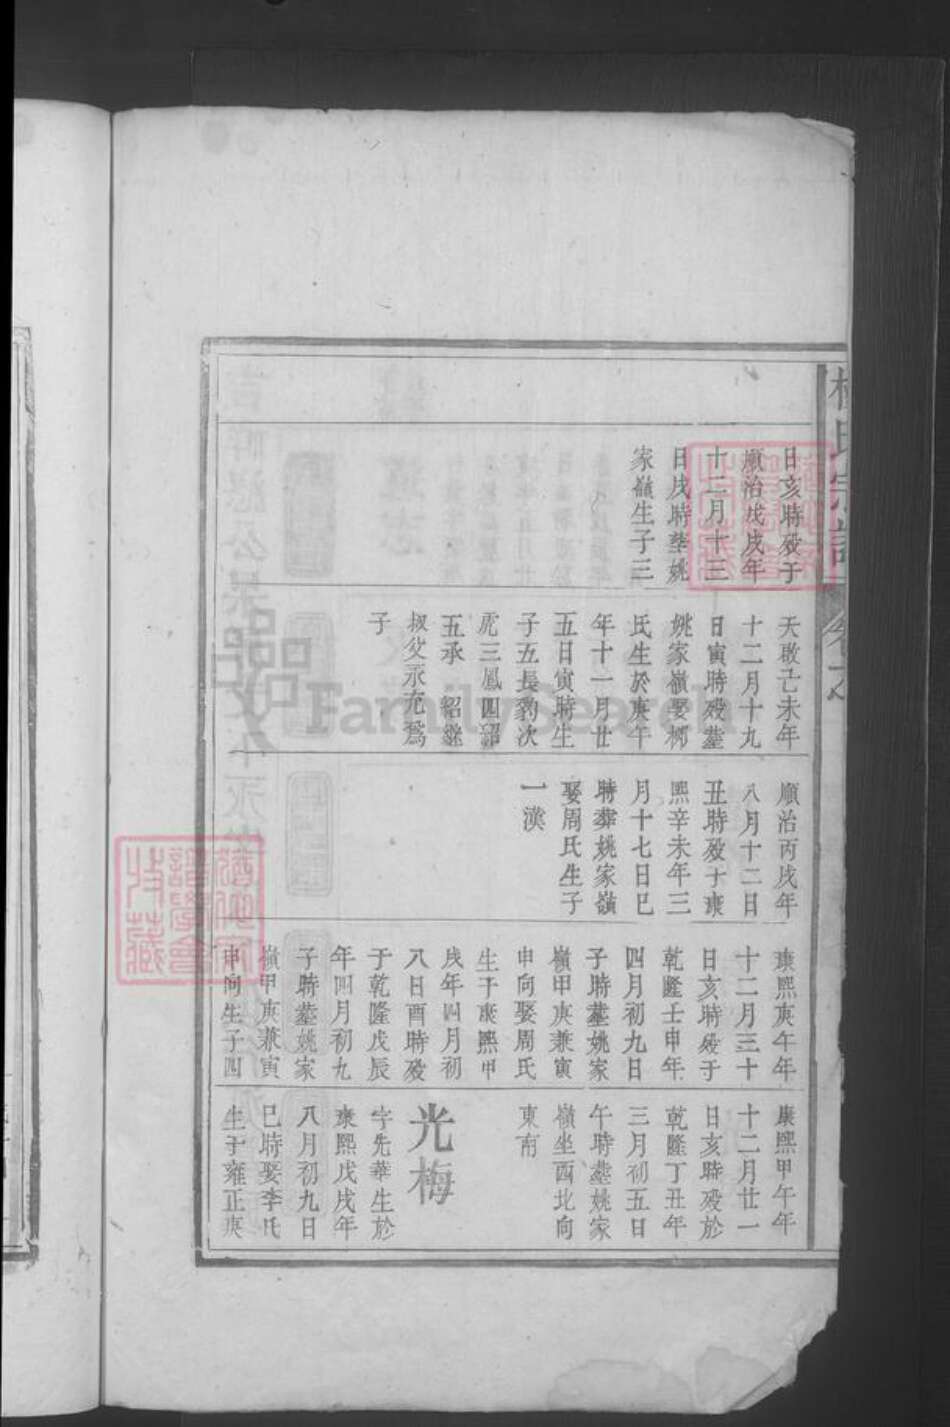 氏宗譜
日亥時殁于
順治戊戌年
十二月十三
日戌時塟姚
家嶺生子三
天啟己未年
十二月十九
日寅時殁塟
姚家嶺娶柳
氏生於庚午
年十一月廿
五日寅時生
子五長豹次
虎三鳳四詔
五承 紹繼
叔父永充爲
子
順治丙戌年
八月十二日
丑時殁于康
熙辛未年三
月十七日巳
時葬姚家嶺
娶周氏生子
一漢
康熙庚午年
十二月三十
日亥時殁于
乾隆壬申年
四月初九日
子時塟姚家
嶺甲庚兼寅
申向娶周氏
生于康熙甲
戌年四月初
八日酉時殁
于乾隆戊辰
年四月初九
子時塟姚家
嶺甲庚兼寅
申向生子四
康熙甲午年
十二月廿一
日亥時殁於
乾隆丁丑年
三月初五日
午時塟姚家
嶺坐酉北向
東南
光梅
字先華生於
康熙戊戌年
八月初九日
巳時娶李氏
生于雍正庚
FamilySearch